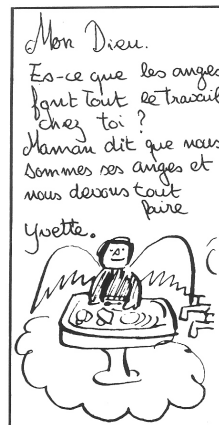 Mon Dieu.
Es-ce que les anges
font Tout le Travail
chez toi ?
Maman dit que nous
sommes ses anges et
nous devons tout
faire
Yvette.